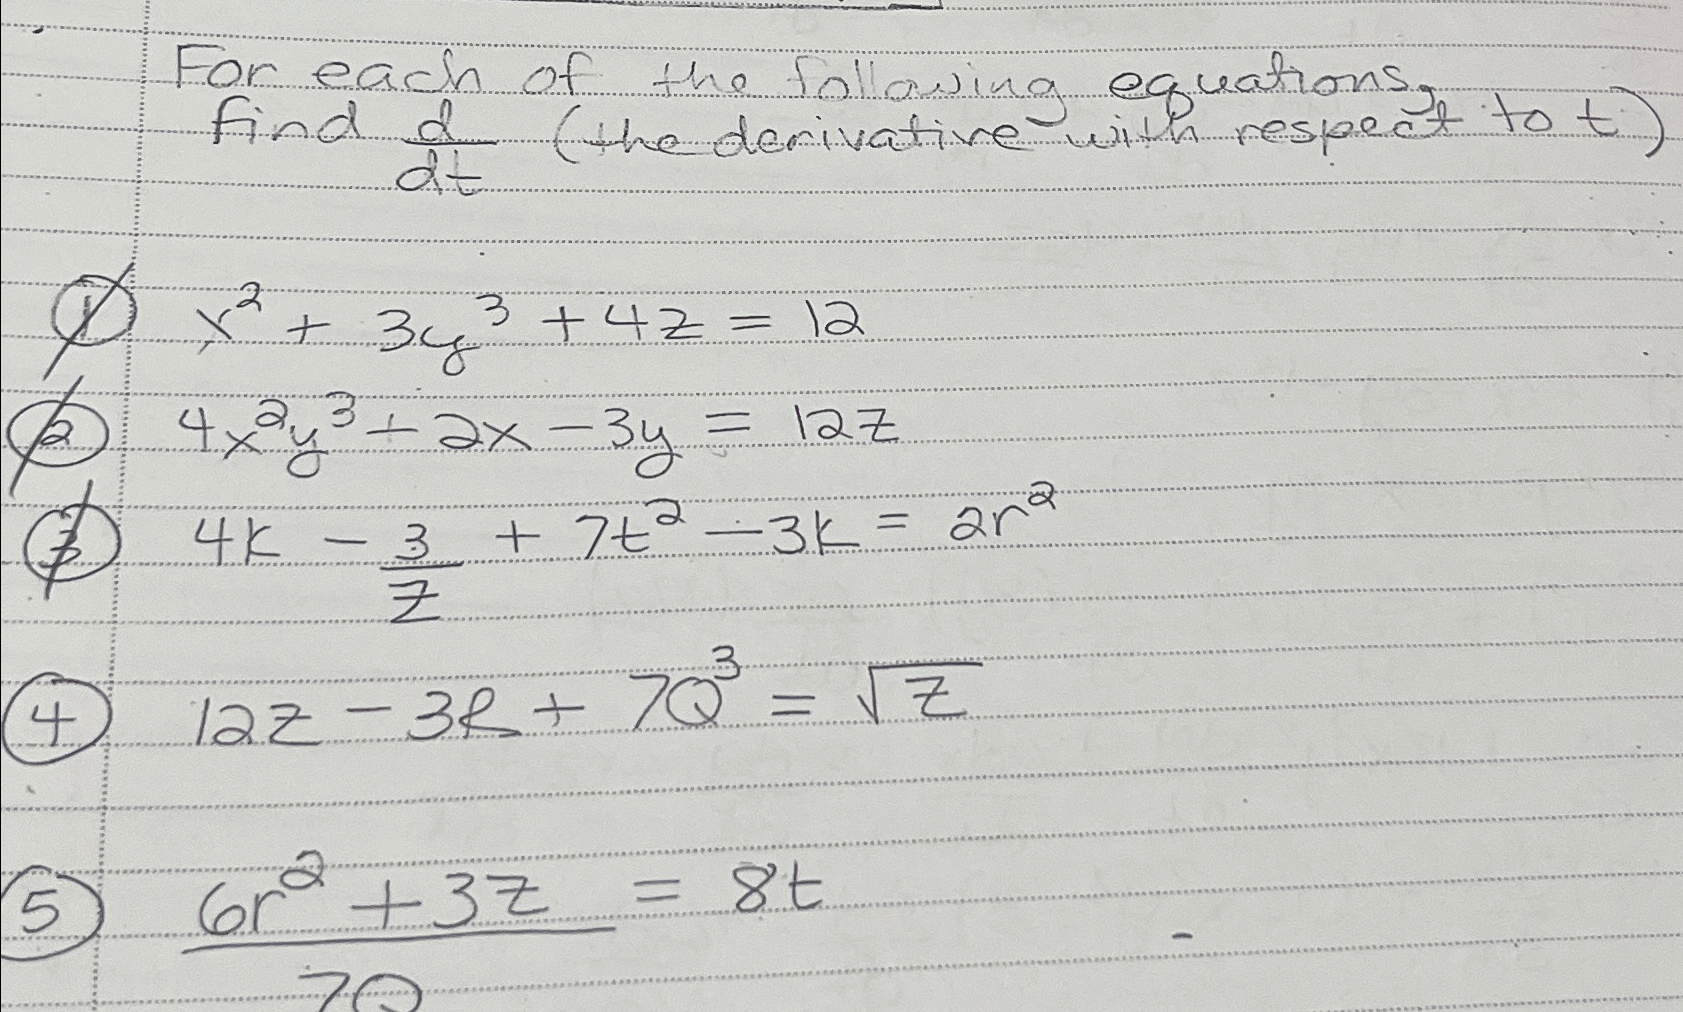 For each of the following equations,
find d/dt (the derivative with respect to t)
① x² + 3y³ + 4z = 12
② 4x²y³ + 2x - 3y = 12z
③ 4k - 3/z + 7t² - 3k = 2r²
④ 12z - 3R + 7Q³ = √z
⑤ 6r² + 3z = 8t
7Q